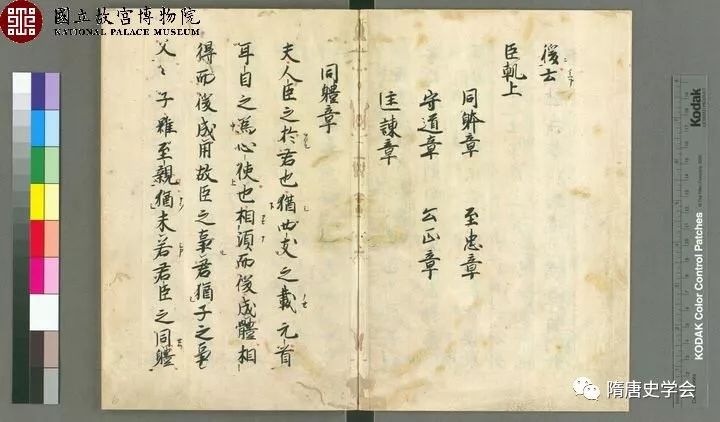 國立故宮博物院
NATIONAL PALACE MUSEUM
後士
臣軌上
同躰章 至忠章
守道章 公正章
匡諫章
同體章
夫人臣之於君也猶四支之載元首
耳目之爲心使也相須而後成體相
得而後成用故臣之事君猶子之事
父〻子雖至親猶未若君臣之同體
Kodak
KODAK Color Control Patches
隋唐史学会